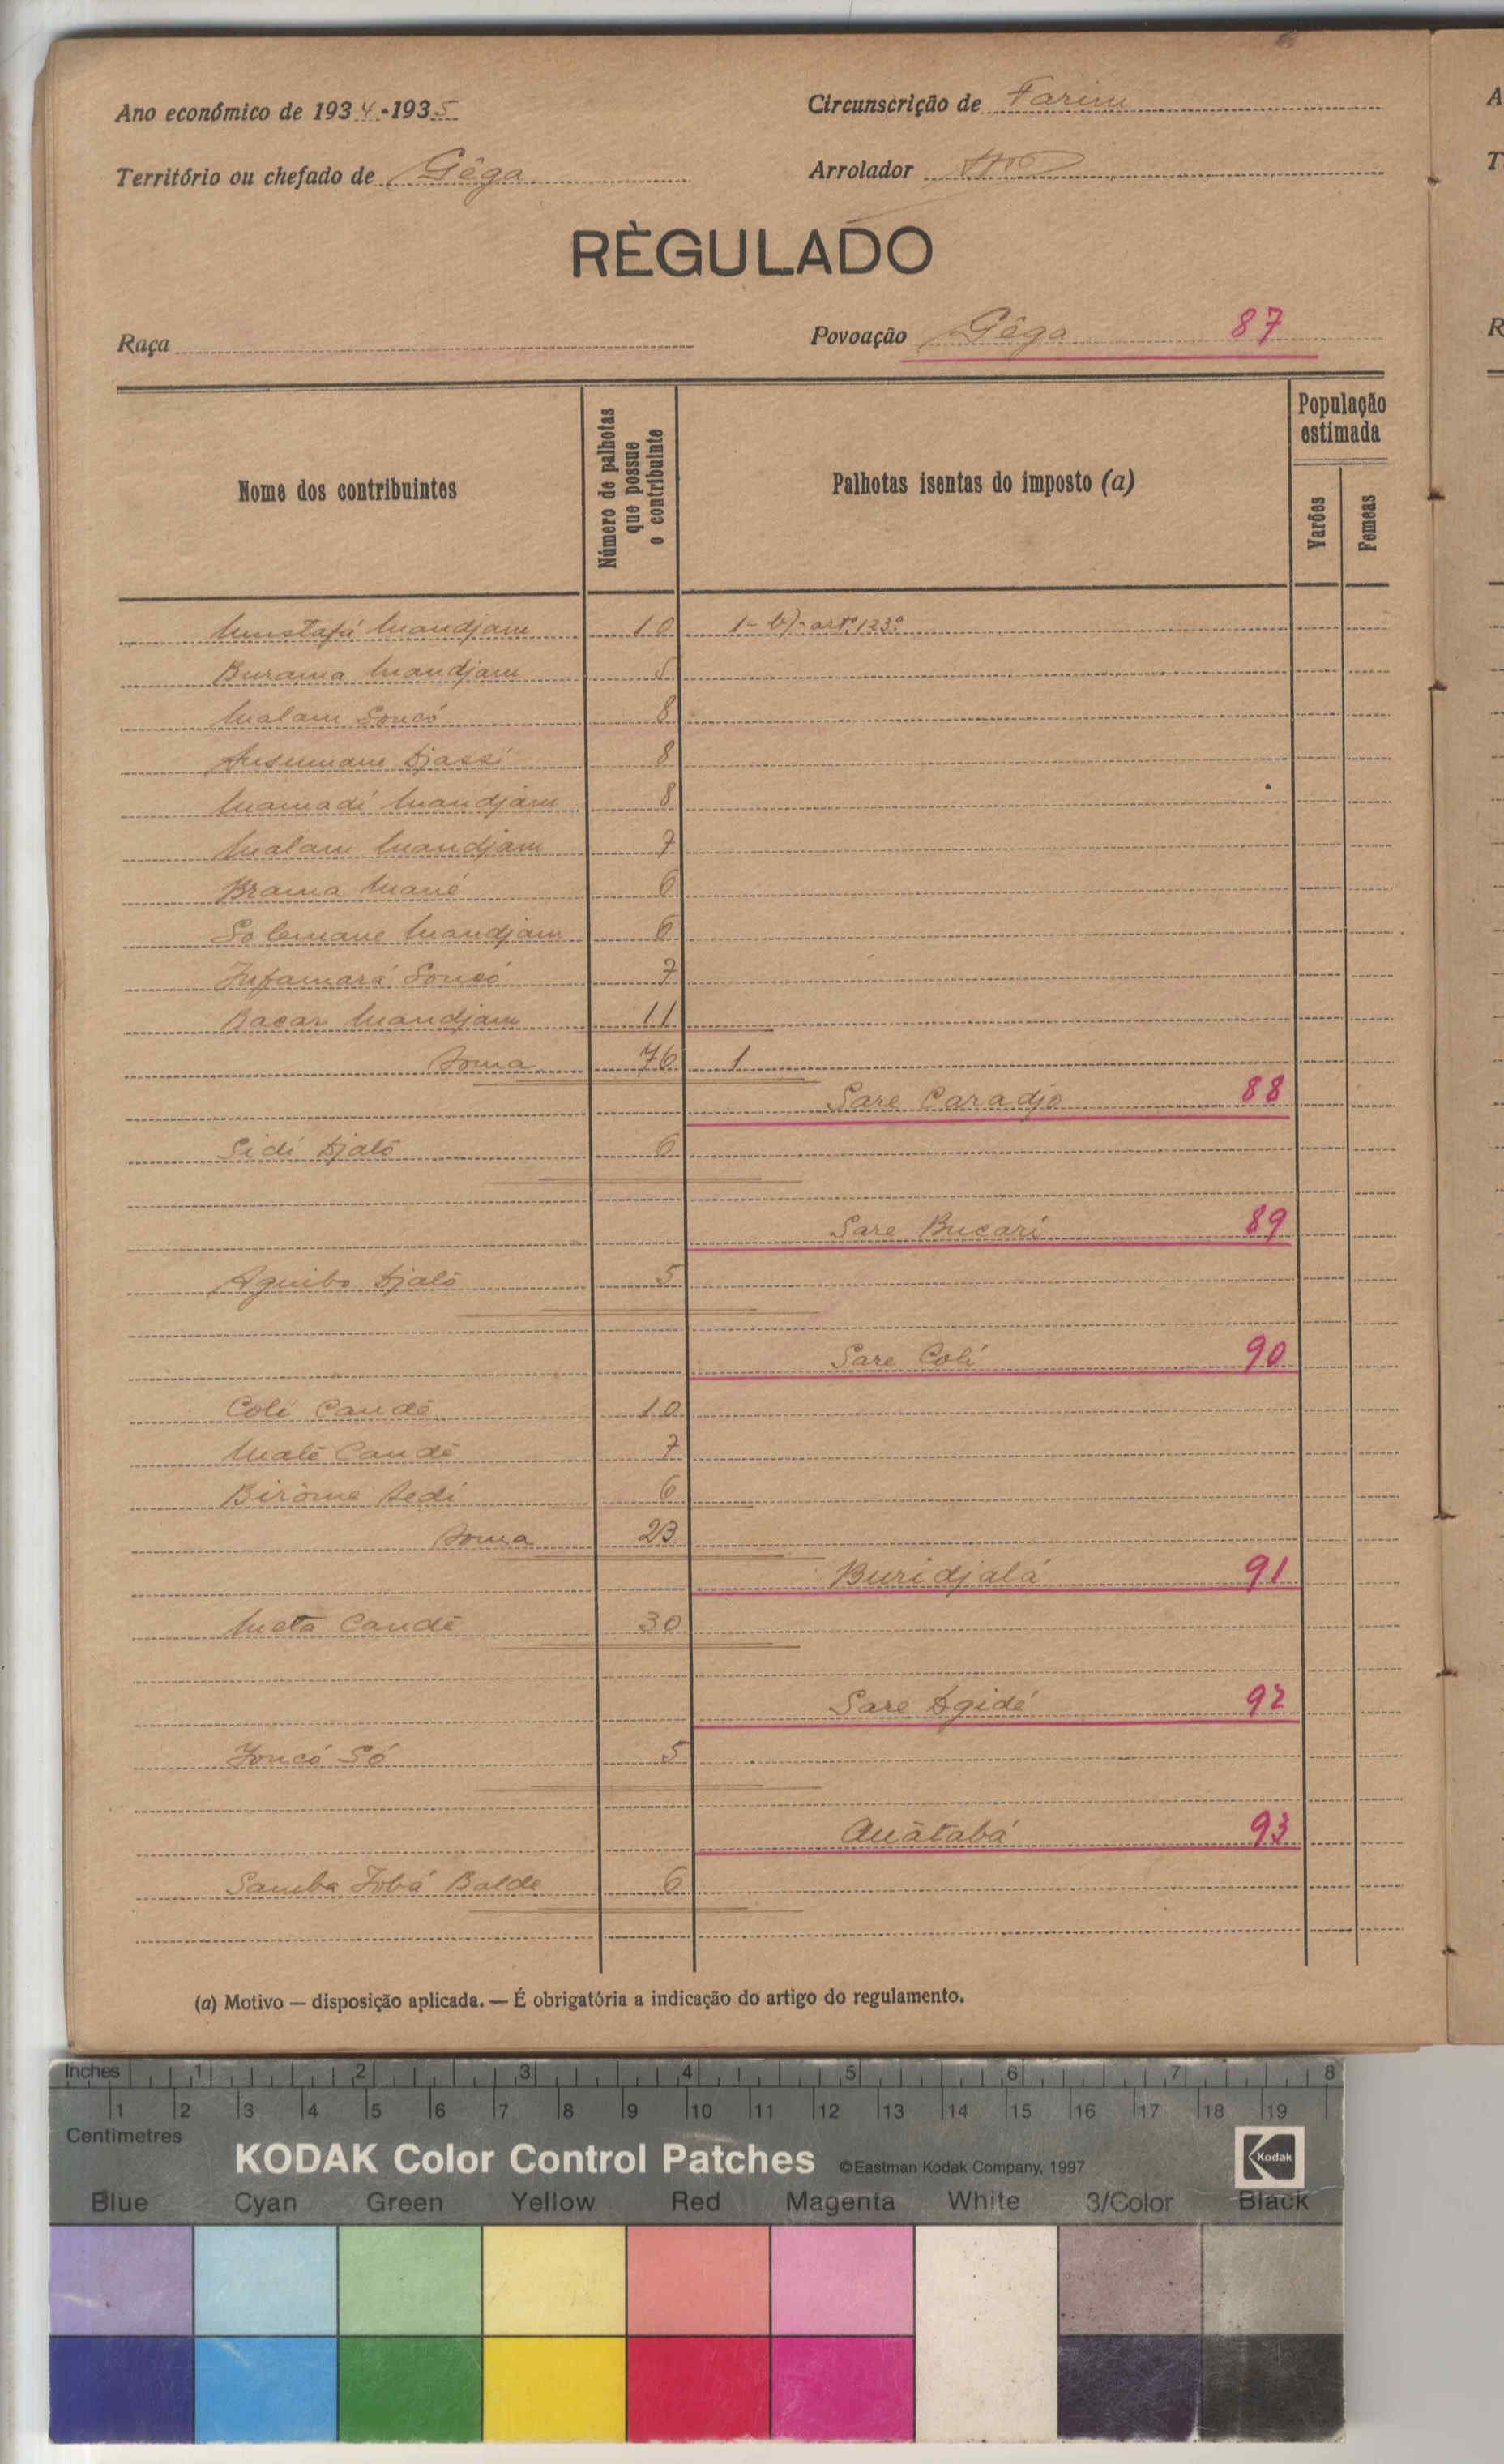 Ano económico de 1934-1935 Circunscrição de Farim
Território ou chefado de Gêga Arrolador
RÈGULADO
Raça Povoação Gêga 87
Nome dos contribuintes
Número de palhotas que possue o contribuinte
Palhotas isentas do imposto (a)
População estimada
Varões
Femeas
Mustafá Mandjam 10 1- b)- artº 123º
Burama Mandjam 5
Malam Soncó 8
Ansumane Djassi 8
Mamadi Mandjam 8
Malam Mandjam 7
Brama Mané 6
Solemane Mandjam 6
Infamará Soncó 7
Bacar Mandjam 11
Soma 76 1
Sare Caradjo 88
Sidi Djaló 6
Sare Bucari 89
Aguibo Djaló 5
Sare Coli 90
Coli Candê 10
Malê Candê 7
Birome Sedi 6
Soma 23
Buridjalá 91
Meta Candê 30
Sare Dgidé 92
Joncó Só 5
Auãtabá 93
Samba Jobá Balde 6
(a) Motivo — disposição aplicada. — É obrigatória a indicação do artigo do regulamento.
Inches 1 2 3 4 5 6 7 8
1 2 3 4 5 6 7 8 9 10 11 12 13 14 15 16 17 18 19
Centimetres
KODAK Color Control Patches ©Eastman Kodak Company, 1997 Kodak
Blue Cyan Green Yellow Red Magenta White 3/Color Black